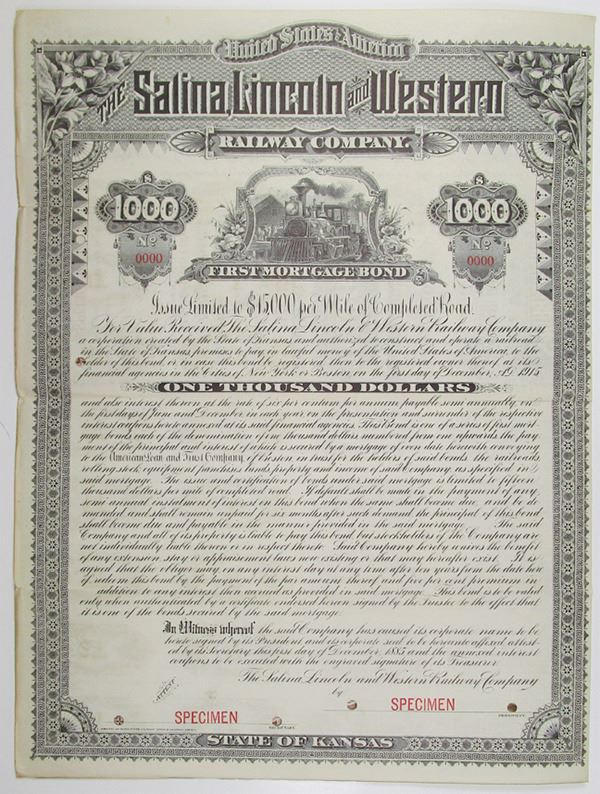 United States of America
THE Salina, Lincoln and Western
RAILWAY COMPANY.
$ $
1000 1000
No No
0000 0000
FIRST MORTGAGE BOND
Issue Limited to $15,000 per Mile of Completed Road.
For Value Received The Salina Lincoln & Western Railway Company
a corporation created by the State of Kansas and authorized to construct and operate a railroad
in the State of Kansas, promises to pay in lawful money of the United States of America to the
holder of this bond, or in case this bond be registered then to the registered owner thereof at its
financial agencies in the Cities of New York or Boston on the first day of December, A.D. 1915
ONE THOUSAND DOLLARS
and also interest thereon at the rate of six per centum per annum, payable semi annually on
the first days of June and December in each year on the presentation and surrender of the respective
interest coupons hereto annexed at its said financial agencies. This Bond is one of a series of first mort-
gage bonds each of the denomination of one thousand dollars numbered from one upwards the pay
ment of the principal and interest of which is secured by a mortgage of even date herewith conveying
to the American Loan and Trust Company of Boston in trust for the holders of said bonds the railroads
rolling stock equipment franchises lands property and income of said Company as specified in
said mortgage. The issue and certification of bonds under said mortgage is limited to fifteen
thousand dollars per mile of completed road. If default shall be made in the payment of any
semi annual instalment of interest in this bond when the same shall become due and be de-
manded and shall remain unpaid for six months after such demand the principal of this bond
shall become due and payable in the manner provided in the said mortgage. The said
Company and all of its property is liable to pay this bond but stockholders of the Company are
not individually liable thereon or in respect thereto. Said Company hereby waives the benefit
of any extension stay or appraisement laws now existing or that may hereafter exist. It is
agreed that the obligor may on any interest day at any time after ten years from the date hereof
redeem this bond by the payment of the par amount thereof and five per cent premium in
addition to any interest then accrued as provided in said mortgage. This bond is to be valid
only when authenticated by a certificate endorsed hereon signed by the Trustee to the effect that
it is one of the bonds secured by the said mortgage.
In Witness whereof the said Company has caused its corporate name to be
hereto signed by its President and its corporate seal to be hereunto affixed attest-
ed by its Secretary this first day of December, 1885 and the annexed interest
coupons to be executed with the engraved signature of its Treasurer.
The Salina Lincoln and Western Railway Company
ATTEST
by
SPECIMEN SPECIMEN
SECRETARY PRESIDENT
STATE OF KANSAS